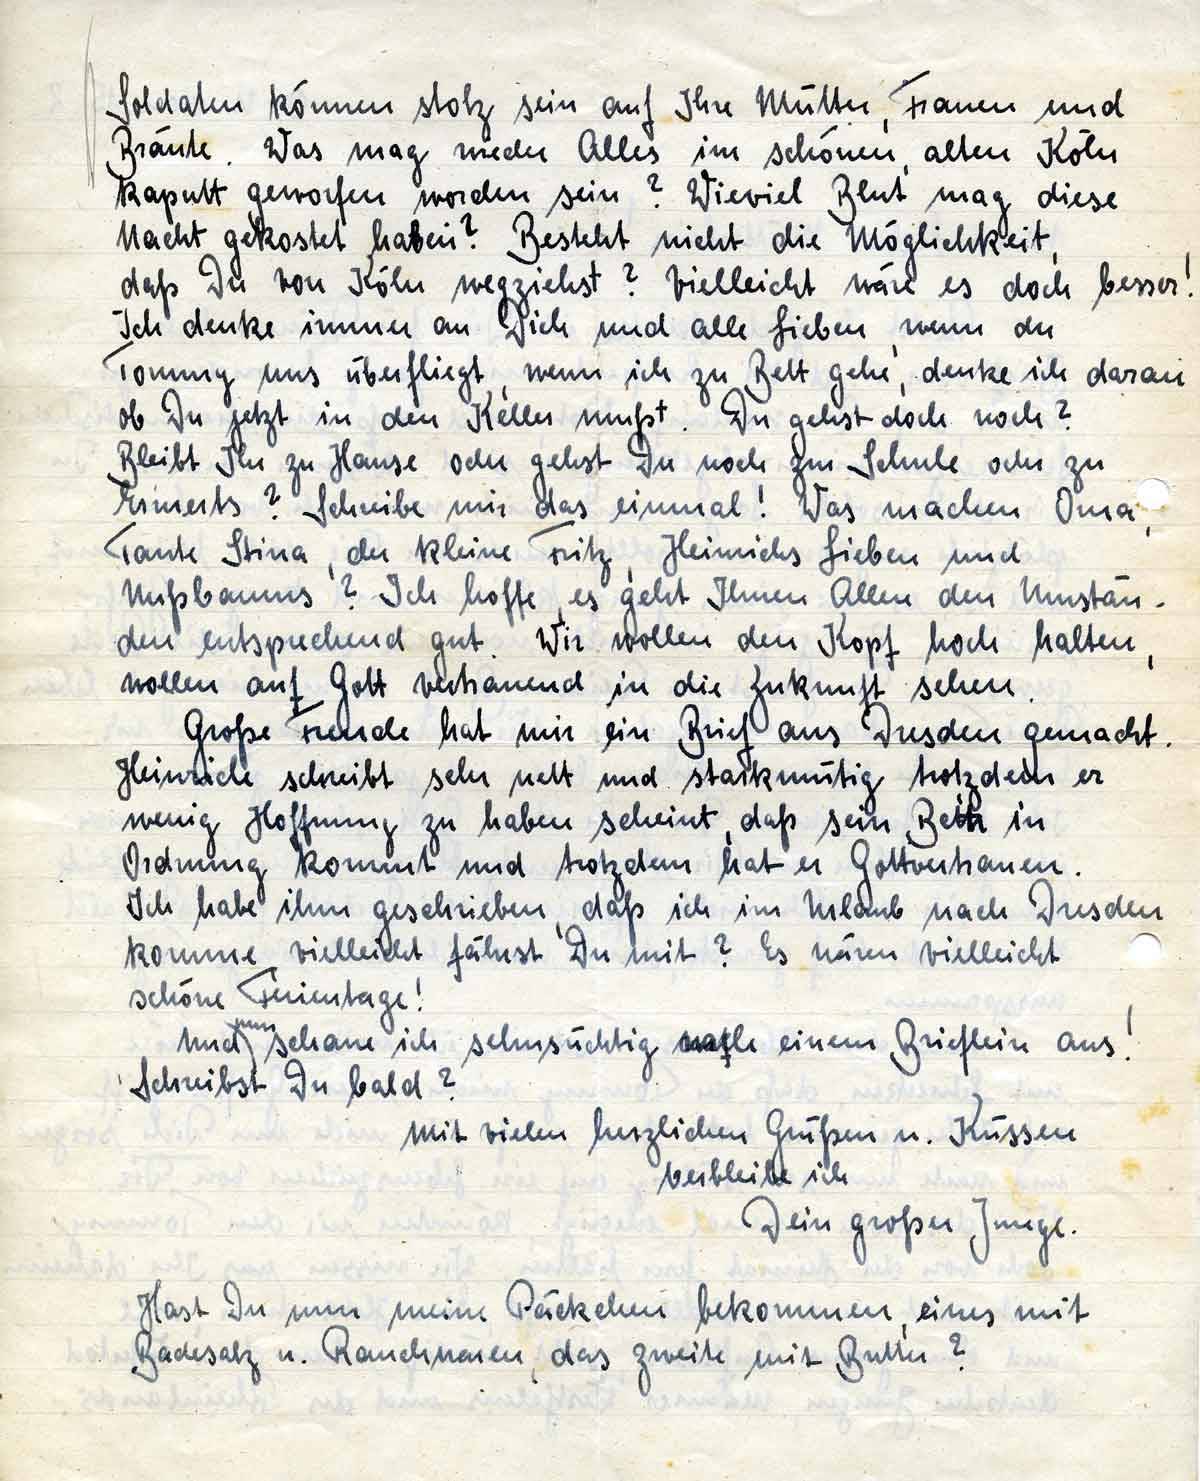 Soldaten können stolz sein auf Ihre Mütter, Frauen und
Bräute. Was mag wieder Alles im schönen, alten Köln
kaputt geworfen worden sein? Wieviel Blut mag diese
Nacht gekostet haben? Besteht nicht die Möglichkeit,
daß Du von Köln wegziehst? Vielleicht wäre es doch besser!
Ich denke immer an Dich und alle Lieben, wenn der
Tommy uns überfliegt, wenn ich zu Bett gehe, denke ich daran
ob Du jetzt in den Keller mußt. Du gehst doch noch?
Bleibt Ihr zu Hause oder gehst Du noch zur Schule oder zu
? Schreibe mir das einmal! Was machen Oma,
Tante Stina, der kleine Fritz, Heinrichs Lieben und
Nußbaums? Ich hoffe, es geht Ihnen Allen den Umstän-
den entsprechend gut. Wir wollen den Kopf hoch halten,
wollen auf Gott vertrauend in die Zukunft sehen.
Große Freude hat mir ein Brief aus Dresden gemacht.
Heinrich schreibt sehr nett und starkmütig trotzdem er
wenig Hoffnung zu haben scheint, daß sein Bein in
Ordnung kommt und trotzdem hat er Gottvertrauen.
Ich habe ihm geschrieben, daß ich im Urlaub nach Dresden
komme, vielleicht fährst Du mit? Es wären vielleicht
schöne Ferientage!
Und nun schaue ich sehnsüchtig nach einem Brieflein aus!
Schreibst Du bald?
Mit vielen herzlichen Grüßen u. Küssen
verbleibe ich
Dein großer Junge.
Hast Du nun meine Päckchen bekommen, eines mit
Badesalz u. Rauchwaren, das zweite mit Butter?